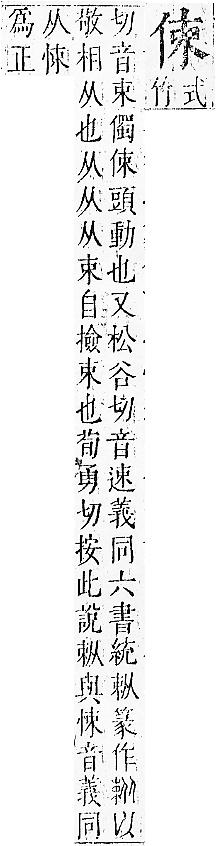 㑛式
竹
切音束㒔㑛頭動也又松谷切音速義同六書統篆作以
敬相从也从从从束自撿束也荀勇切按此說與悚音義同
从悚
爲正